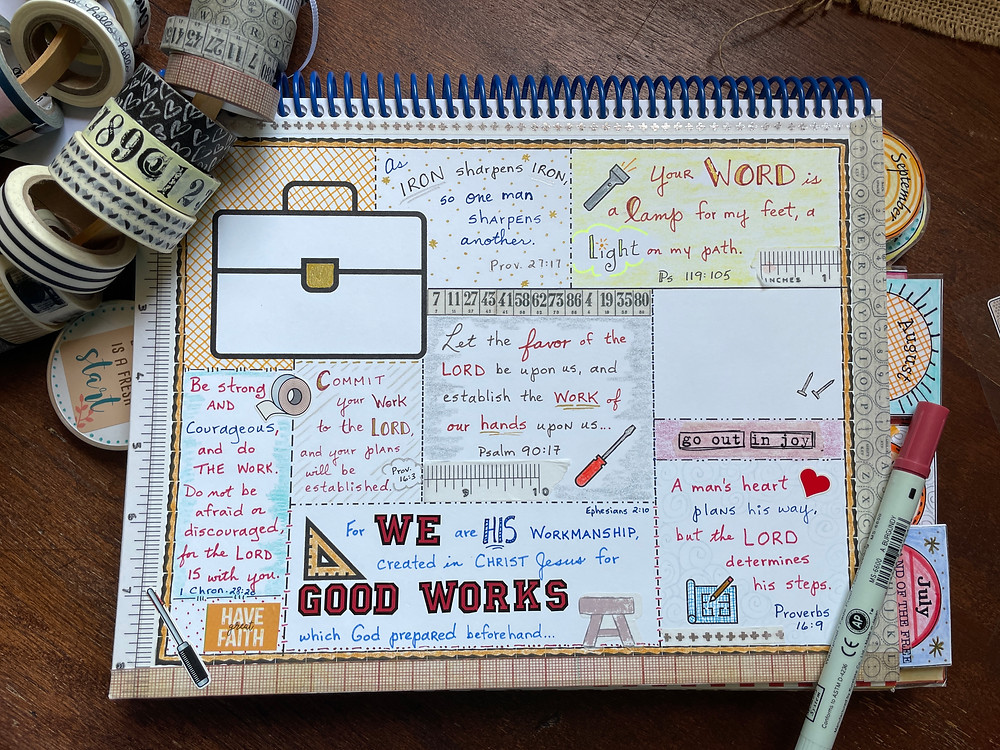 As
IRON sharpens IRON,
so one man
sharpens
another.
Prov. 27:17
Your WORD is
a lamp for my feet, a
Light on my path.
Ps 119:105
INCHES 1
7 11 27 43 41 58 62 73 86 4 19 35 80
Let the favor of the
LORD be upon us, and
establish the WORK of
our hands upon us...
Psalm 90:17
9 10
Be strong
AND
Courageous,
and do
THE WORK.
Do not be
afraid or
discouraged,
for the LORD
is with you.
1 Chron. 28:20
HAVE
great
FAITH
COMMIT
your Work
to the LORD,
and your plans
will be
established.
Prov.
16:3
go out in joy
A man's heart
plans his way,
but the LORD
determines
his steps.
Proverbs
16:9
Ephesians 2:10
For WE are HIS WORKMANSHIP,
created in CHRIST Jesus for
GOOD WORKS
which God prepared beforehand...
3
4
5
6
7
8
September
August
July
ND OF THE FREE
MS-6600 A. BURGUNDY
AP
CE
Conforms to ASTM D-4236
hello
27 11 7
1890
2
IS A FRESH
start